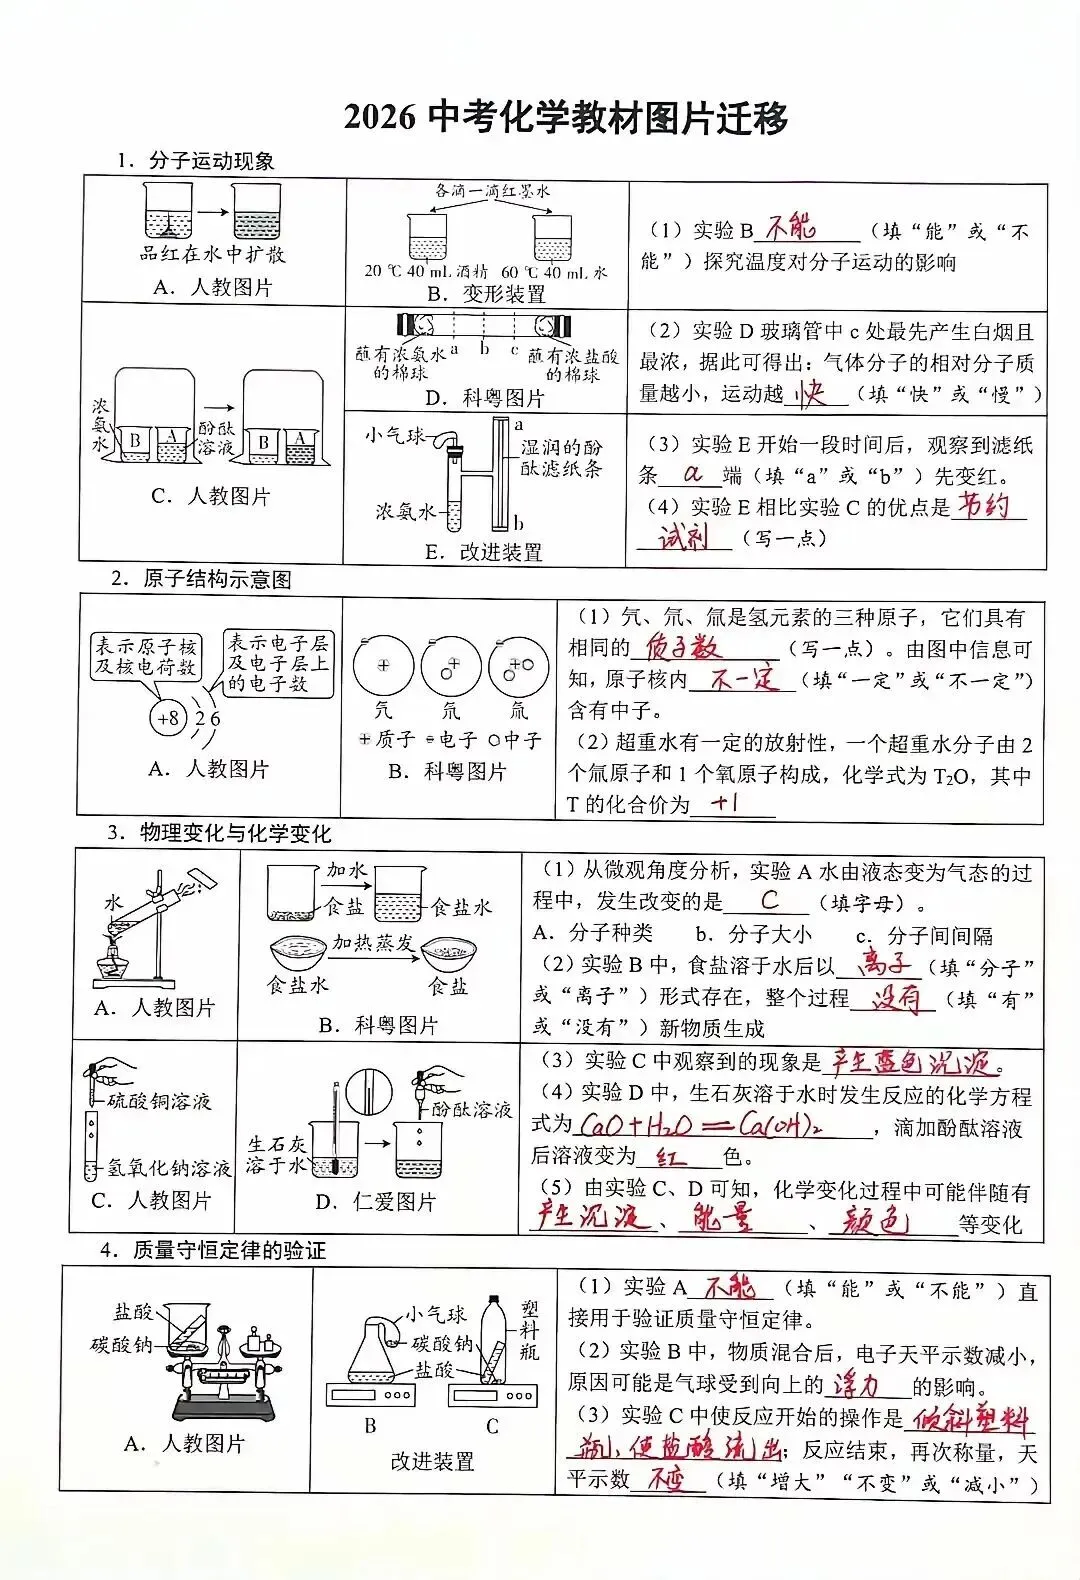 2026 中考化学教材图片迁移
1．分子运动现象
品红在水中扩散
A．人教图片
各滴一滴红墨水
20 ℃ 40 mL 酒精 60 ℃ 40 mL 水
B．变形装置
（1）实验 B 不能 （填“能”或“不
能”）探究温度对分子运动的影响
浓氨水
B A
酚酞溶液
B A
C．人教图片
a b c
蘸有浓氨水的棉球
蘸有浓盐酸的棉球
D．科粤图片
（2）实验 D 玻璃管中 c 处最先产生白烟且
最浓，据此可得出：气体分子的相对分子质
量越小，运动越 快 （填“快”或“慢”）
小气球
a
湿润的酚酞滤纸条
浓氨水
b
E．改进装置
（3）实验 E 开始一段时间后，观察到滤纸
条 a 端（填“a”或“b”）先变红。
（4）实验 E 相比实验 C 的优点是 节约
试剂 （写一点）
2．原子结构示意图
表示原子核及核电荷数
表示电子层及电子层上的电子数
+8 2 6
A．人教图片
氕 氘 氚
质子 电子 中子
B．科粤图片
（1）氕、氘、氚是氢元素的三种原子，它们具有
相同的 质子数 （写一点）。由图中信息可
知，原子核内 不一定 （填“一定”或“不一定”）
含有中子。
（2）超重水有一定的放射性，一个超重水分子由 2
个氚原子和 1 个氧原子构成，化学式为 T₂O，其中
T 的化合价为 +1
3．物理变化与化学变化
水
A．人教图片
加水
食盐 食盐水
加热蒸发
食盐水 食盐
B．科粤图片
（1）从微观角度分析，实验 A 水由液态变为气态的过
程中，发生改变的是 C （填字母）。
A．分子种类 b．分子大小 c．分子间间隔
（2）实验 B 中，食盐溶于水后以 离子 （填“分子”
或“离子”）形式存在，整个过程 没有 （填“有”
或“没有”）新物质生成
硫酸铜溶液
氢氧化钠溶液
C．人教图片
酚酞溶液
生石灰溶于水
D．仁爱图片
（3）实验 C 中观察到的现象是 产生蓝色沉淀。
（4）实验 D 中，生石灰溶于水时发生反应的化学方程
式为 CaO+H₂O=Ca(OH)₂ ，滴加酚酞溶液
后溶液变为 红 色。
（5）由实验 C、D 可知，化学变化过程中可能伴随有
产生沉淀 、 能量 、 颜色 等变化
4．质量守恒定律的验证
盐酸
碳酸钠
A．人教图片
小气球
碳酸钠
盐酸
塑料瓶
B C
改进装置
（1）实验 A 不能 （填“能”或“不能”）直
接用于验证质量守恒定律。
（2）实验 B 中，物质混合后，电子天平示数减小，
原因可能是气球受到向上的 浮力 的影响。
（3）实验 C 中使反应开始的操作是 倾斜塑料
瓶，使盐酸流出；反应结束，再次称量，天
平示数 不变 （填“增大”“不变”或“减小”）